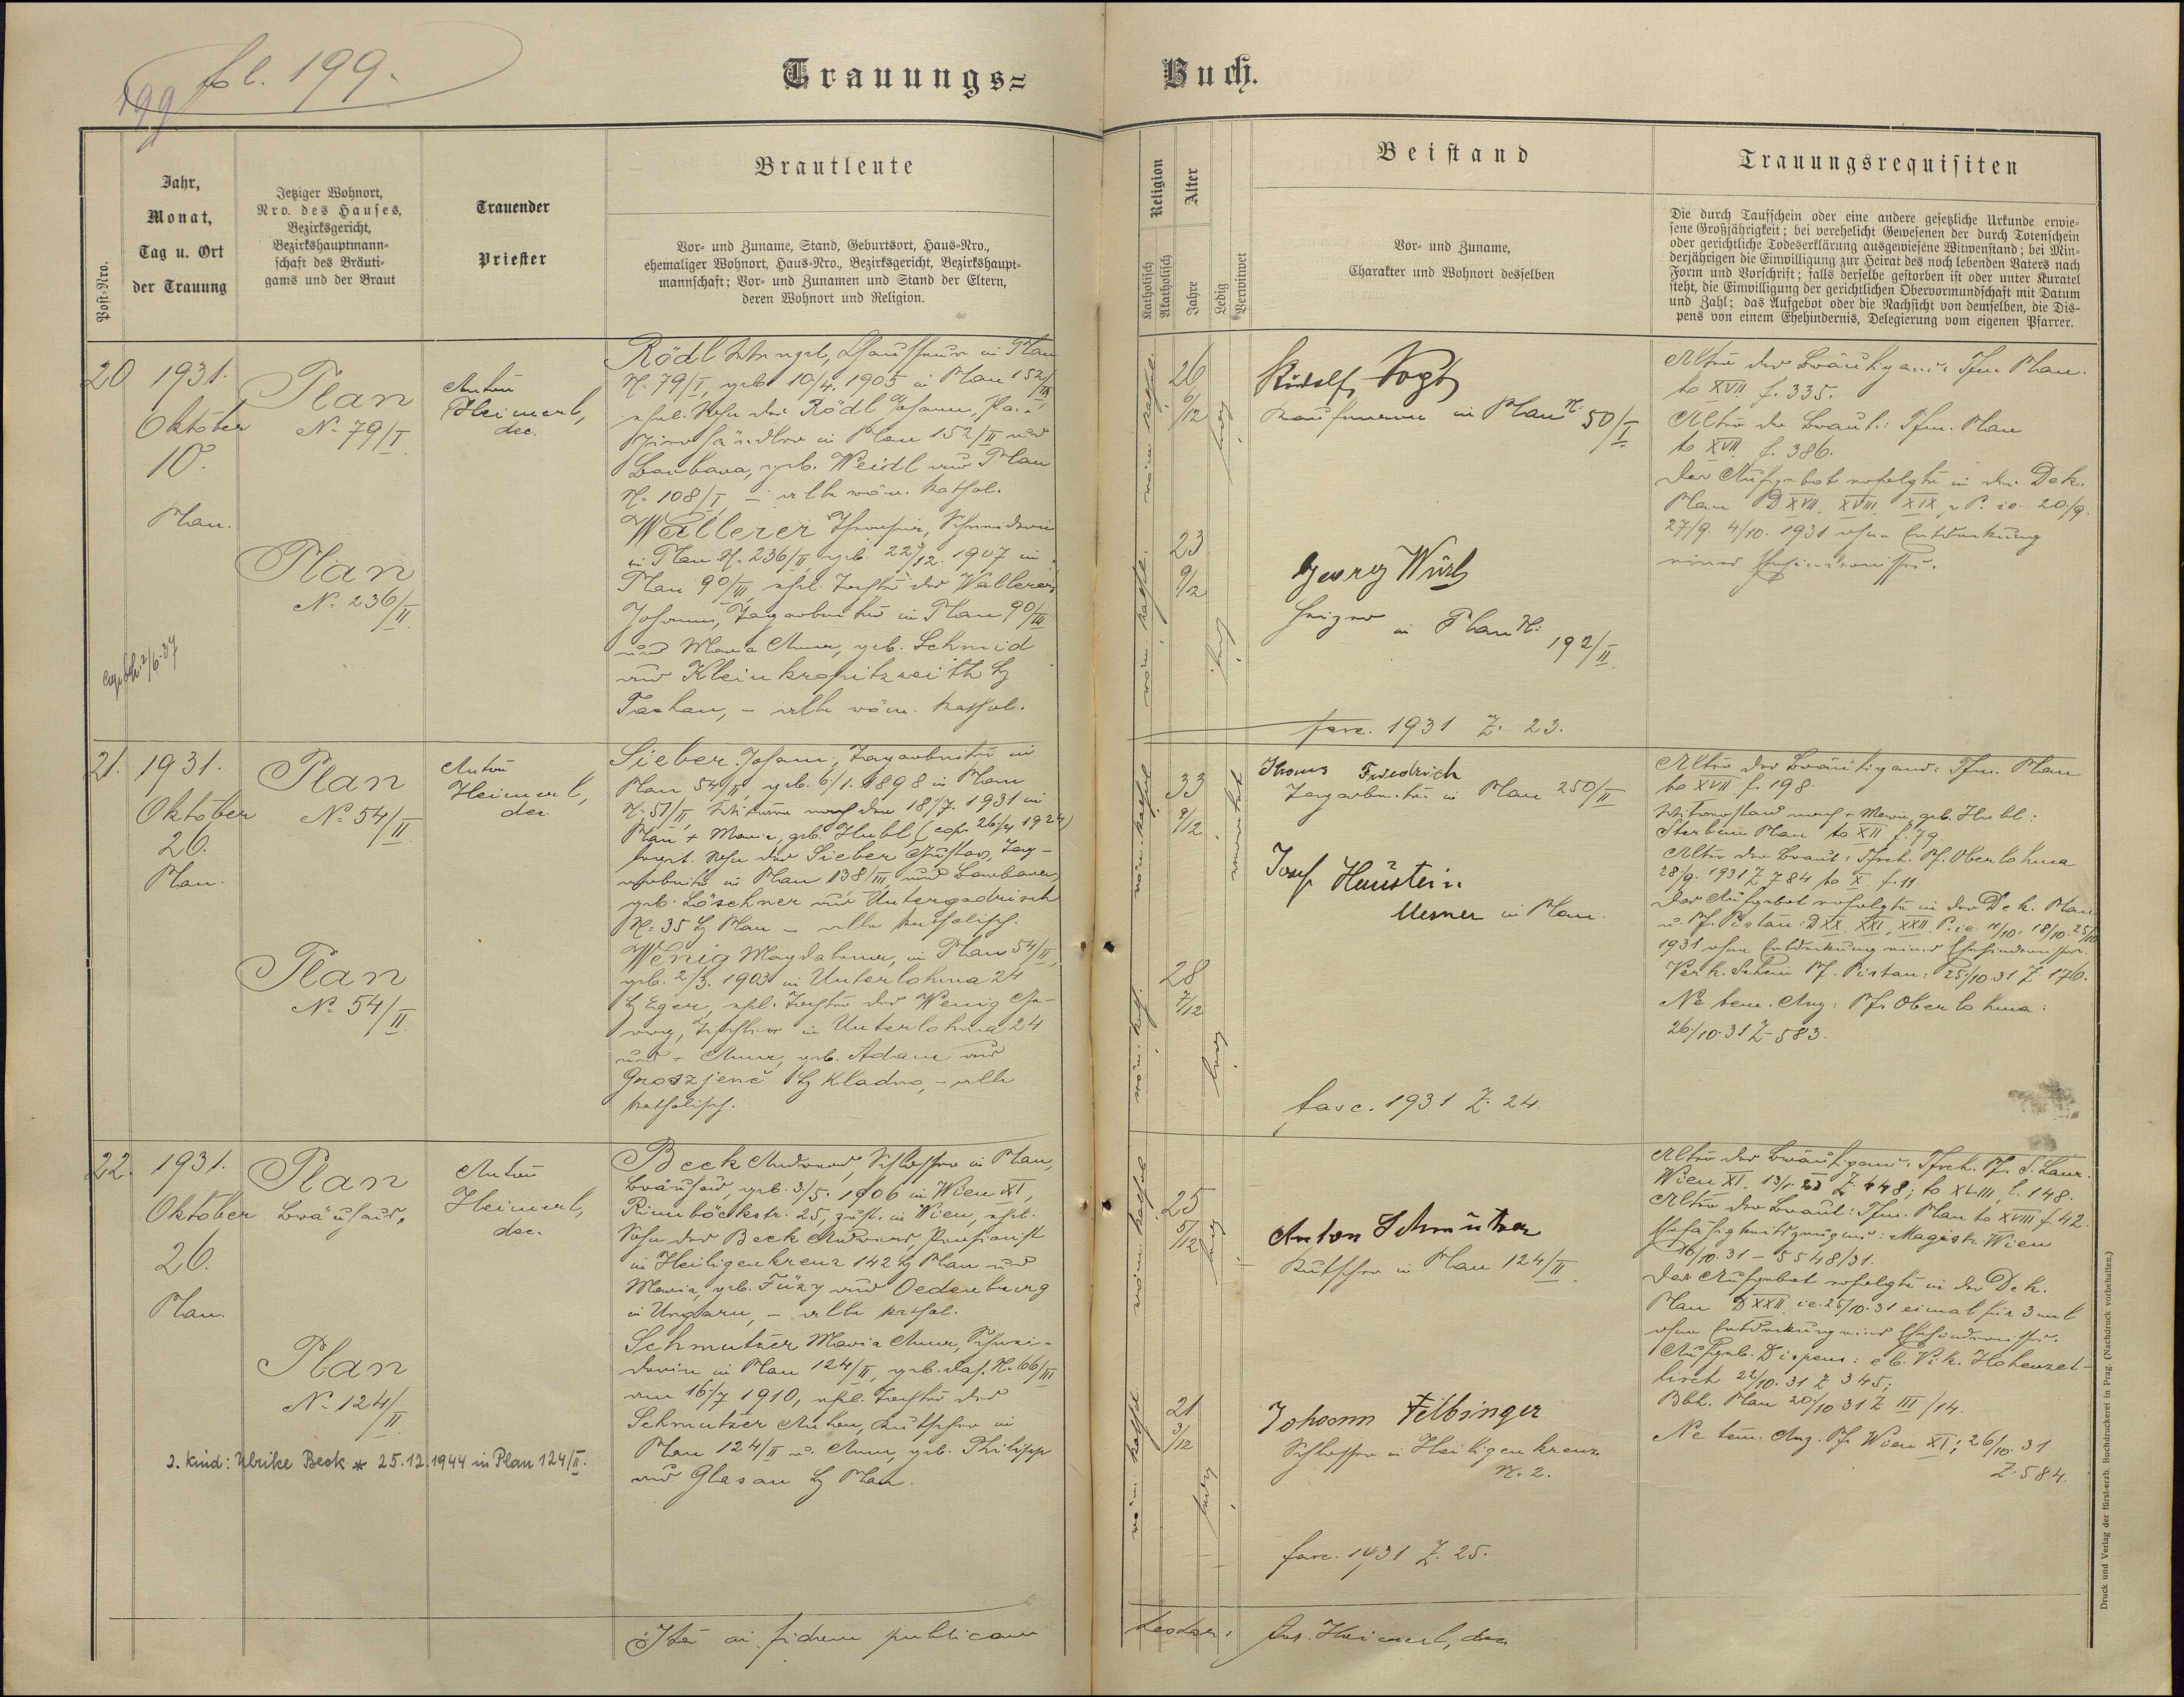 fol. 199.
199
Trauungs=Buch.
Post=Nro.
Jahr,
Monat,
Tag u. Ort
der Trauung
Jetziger Wohnort,
Nro. des Hauses,
Bezirksgericht,
Bezirkshauptmann=
schaft des Bräuti=
gams und der Braut
Trauender
Priester
Brautleute
Vor= und Zuname, Stand, Geburtsort, Haus=Nro.,
ehemaliger Wohnort, Haus=Nro., Bezirksgericht, Bezirkshaupt=
mannschaft; Vor= und Zunamen und Stand der Eltern,
deren Wohnort und Religion.
Religion
Katholisch
Akatholisch
Alter
Jahre
Ledig
Verwitwet
Beistand
Vor= und Zuname,
Charakter und Wohnort desselben
Trauungsrequisiten
Die durch Taufschein oder eine andere gesetzliche Urkunde erwie=
sene Großjährigkeit; bei verehelicht Gewesenen der durch Totenschein
oder gerichtliche Todeserklärung ausgewiesene Witwenstand; bei Min=
derjährigen die Einwilligung zur Heirat des noch lebenden Vaters nach
Form und Vorschrift; falls derselbe gestorben ist oder unter Kuratel
steht, die Einwilligung der gerichtlichen Obervormundschaft mit Datum
und Zahl; das Aufgebot oder die Nachsicht von demselben, die Dis=
pens von einem Ehehindernis, Delegierung vom eigenen Pfarrer.
20
1931.
Oktober
10.
Plan.
Plan
No. 79/I
Plan
No. 236/II
Anton
Heimerl,
dec.
Rödl Wenzel, Chauffeur in Plan
N. 79/I, geb. 10/4. 1905 in Plan 152/II,
ehel. Sohn des Rödl Johann,
in Plan 152/II und
Barbara, geb. Weidl aus Plan
N. 108/I – alle röm. kathol.
Wallerer Theresia, Schneiderin
in Plan N. 236/II, geb. 22/12. 1907 in
Plan 90/III, ehel. Tochter des Wallerer
Johann, Tagarbeiter in Plan 90/III
und Maria Anna, geb. Schmid
aus Kleinkropitzreith Bz
Tachau, – alle röm. kathol.
röm. kathol.
26
6/12
ledig
röm. kathol.
23
9/12
ledig
Rudolf Vogt
Kaufmann in Plan N. 50/I
Georg Würl
Heizer in Plan N. 192/II
fasc. 1931 Z. 23.
Alter des Bräutigams: Tfm. Plan
to XVII f. 335.
Alter der Braut: Tfm. Plan
to XVII f. 386.
Das Aufgebot erfolgte in der Dek.
Plan D XVII, XVIII, XIX p. P. ie. 20/9.
27/9. 4/10. 1931 ohne Entdeckung
eines Ehehindernisses.
21.
1931.
Oktober
26.
Plan.
Plan
No. 54/II
Plan
No. 54/II
Anton
Heimerl,
dec.
Sieber Johann, Tagarbeiter in
Plan 54/II, geb. 6/1. 1898 in Plan
N. 51/II, Witwer nach der 18/7. 1931 in
Plan + Maria, geb. Hubl, (cop. 26/4 1924)
Sohn des Sieber Gustav, Tag-
arbeiter in Plan 138/III und Barbara,
geb. Löschner aus Untergodrisch
N. 35 Bz Plan – alle katholisch.
Wenig Magdalena, in Plan 54/II,
geb. 2/3. 1903 in Unterlohma 24
Bz Eger, ehel. Tochter des Wenig Ge-
org, Tischler in Unterlohma 24
und + Anna, geb. Adam aus
Groszjenč Bz Kladno, – alle
katholisch.
röm. kathol.
33
9/12
verwitwet
röm. kath.
28
7/12
ledig
Thomas Friedrich
Tagarbeiter in Plan 250/II
Josef Haustein
Mesner in Plan.
fasc. 1931 Z. 24.
Alter des Bräutigams: Tfm. Plan
to XVII f. 198.
Witwerstand nach + Maria, geb. Hubl:
Sterbm. Plan to XII f. 79.
Alter der Braut: Tfsch. Pf. Oberlohma
28/9. 1931 Z 784 to X. f. 11.
Das Aufgebot erfolgte in der Dek. Plan
u. Pf. Pistau: D XX, XXI, XXII P. ie. 11/10. 18/10. 25/10
1931 ohne Entdeckung eines Ehehindernisses.
Verk. Schein Pf. Pistau: 25/10. 31 Z 176.
Ne tem. Anz: Pf. Oberlohma:
26/10. 31 Z 583.
22.
1931.
Oktober
26.
Plan.
Plan
Bräuhaus.
Plan
No. 124/II
Anton
Heimerl,
dec.
Beck Andreas, Schlosser in Plan,
Bräuhaus, geb. 3/5. 1906 in Wien XI,
Rinnböckstr. 25, zust. in Wien, ehel.
Sohn des Beck Andreas, Pensionist
in Heiligenkreuz 142 Bz Plan und
Maria, geb. Füzy aus Oedenburg
in Ungarn, – alle kathol.
Schmutzer Maria Anna, Schnei-
derin in Plan 124/II, geb. das. N. 66/III
am 16/7 1910, ehel. Tochter des
Schmutzer Anton, Kutscher in
Plan 124/II u. Anna, geb. Philipp
aus Glasau Bz Plan.
2. Kind: Ulrike Beck * 25.12.1944 in Plan 124/II.
röm. kathol.
25
5/12
ledig
röm. kathol.
21
3/12
ledig
Anton Schmutzer
Kutscher in Plan 124/II
Johann Felbinger
Schlosser in Heiligenkreuz
N. 2.
fasc. 1931 Z. 25.
Alter des Bräutigams: Tfsch. Pf. S. Laur.
Wien XI. Z 448; to XLIII, f. 148.
Alter der Braut: Tfm. Plan to XVIII f. 42.
Ehefähigkeitszeugnis: Magistr. Wien
16/10. 31 – 5548/31.
Das Aufgebot erfolgte in der Dek.
Plan D XXII ie. 25/10. 31 eimal für 3 mal
ohne Entdeckung eines Ehehindernisses.
Aufgeb. Dispens: eb. Vik. Hohenzet-
lisch 22/10. 31 Z 345;
Bbh. Plan 20/10 31 Z III/14.
Ne tem. Anz. Pf. Wien XI; 26/10. 31
Z. 584.
Ita ai fidem publicam
testor: Ant. Heimerl, dec
Druck und Verlag der fürst-erzb. Buchdruckerei in Prag. (Nachdruck vorbehalten.)